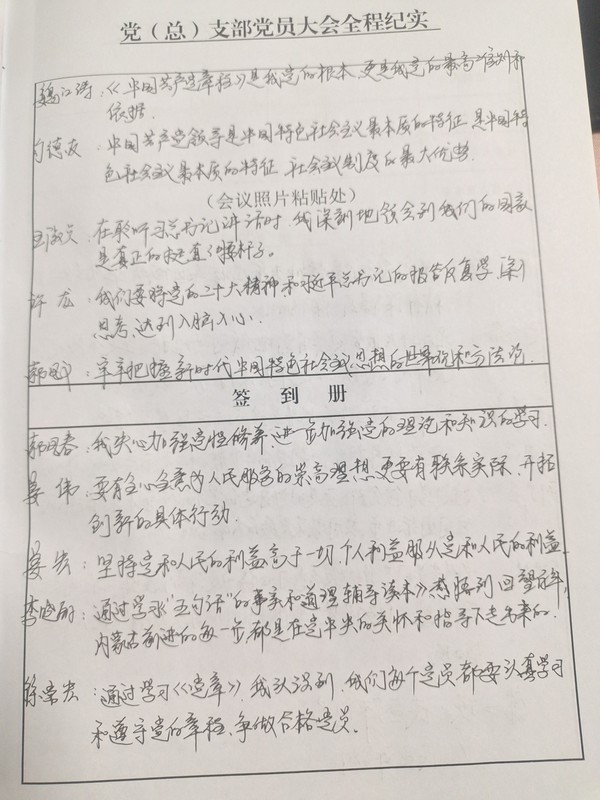 党（总）支部党员大会全程纪实
江涛：《中国共产党章程》是我党的根本，更是我党的最高准则和
依据.
德友：中国共产党领导是中国特色社会主义最本质的特征 是中国特
色社会主义最本质的特征 社会主义制度的最大优势.
（会议照片粘贴处）
在聆听习总书记讲话时，我深刻地领会到我们的国家
是真正的挺直了腰杆子。
许龙：我们要将党的二十大精神和习近平总书记的报告反复学，深入
思考，达到入脑入心.
郭：牢牢把握新时代中国特色社会主义思想的世界观和方法论.
签 到 册
郭春：我决心加强党性修养，进一步加强党的理论和知识的学习.
姜伟：要有全心全意为人民服务的崇高理想，更要有联系实际、开拓
创新的具体行动.
姜宏：坚持党和人民的利益高于一切，个人利益服从党和人民的利益.
李晓丽：通过学习“五句话”的事实和道理辅导读本》感悟到 回望百年，
内蒙古前进的每一步，都是在党中央的关怀和指导下走出来的.
徐宏：通过学习《党章》，我认识到，我们每个党员都要认真学习
和遵守党的章程，争做合格党员.